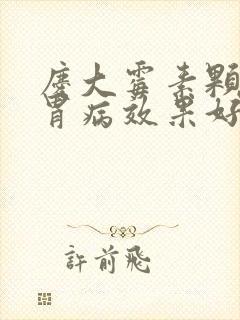 庆大霉素颗
胃病效果好
許前飛